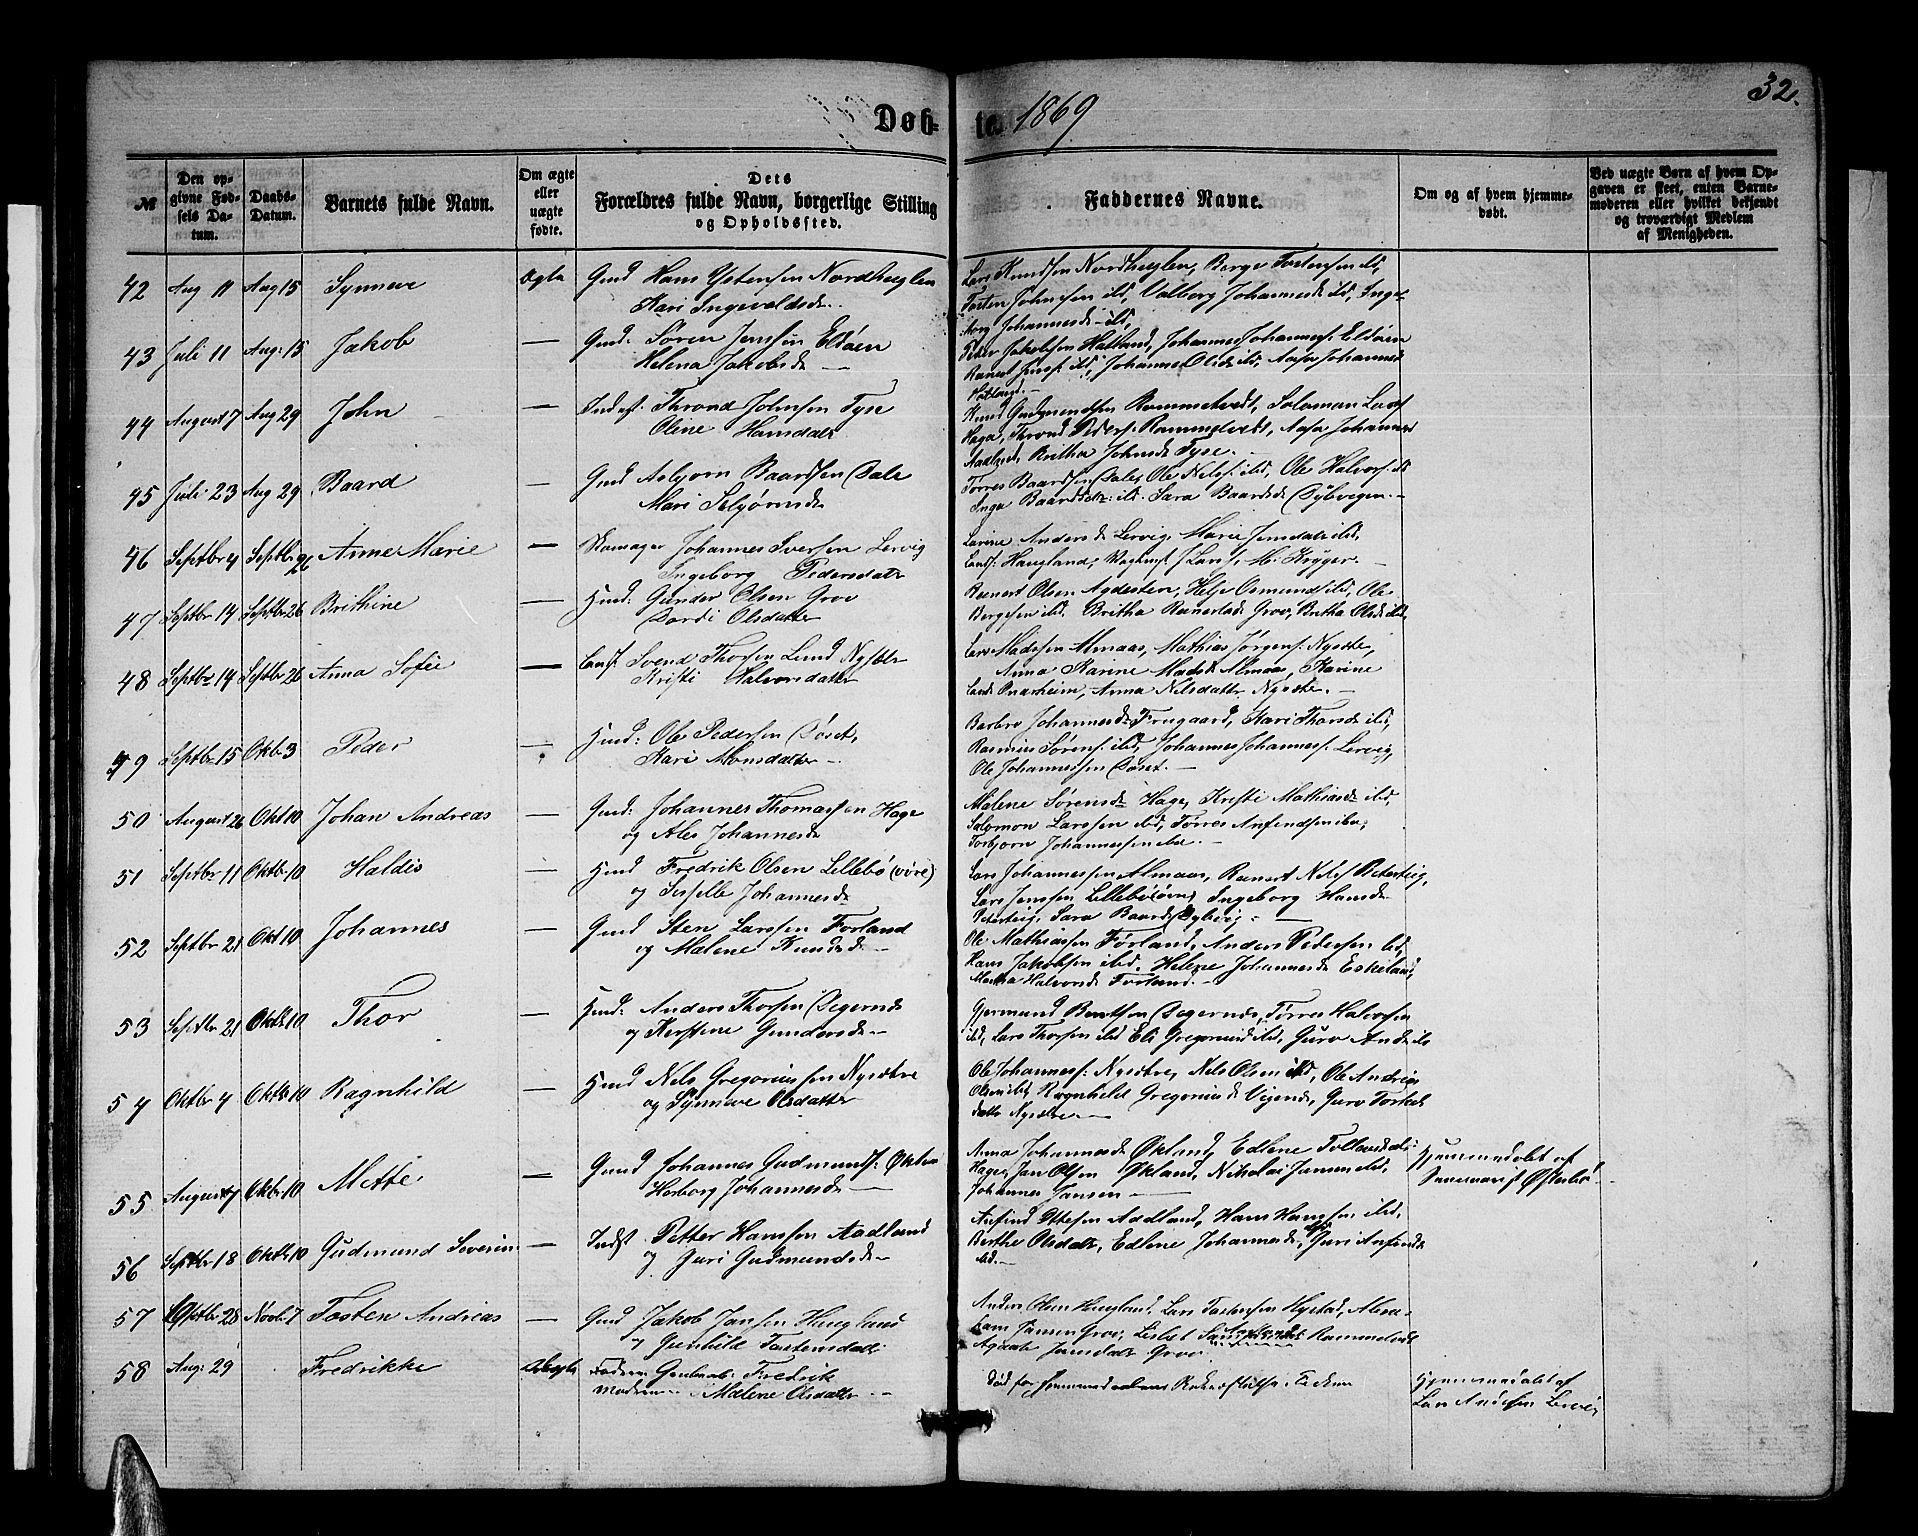 32.
Døbte. 1869
№ | Den opgivne Fødsels Datum. | Daabs-Datum. | Barnets fulde Navn. | Om ægte eller uægte fødte. | Dets Forældres fulde Navn, borgerlige Stilling og Opholdssted. | Faddernes Navne. | Om og af hvem hjemmedøbt. | Ved uægte Børn af hvem Opgaven er skeet, enten Barnemoderen eller hvilket bekjendt og troværdigt Medlem af Menigheden.
42 Aug 11 Aug 15 Synneve Ægte Gmd Hans Ystensen Nordhuglen
Kari Ingevaldsd.
Lars Knudsen Nordhuglen, Berge Tostensen ibd,
Tosten Johnsen ibd, Valborg Johannesd ibd, Inge-
borg Johannesd ibd,
43 Juli 11 Aug: 15 Jakob — Gmd: Søren Jenssøn Eldøen
Helena Jakobsd —
Peder Jakobsen Hatland, Johannes Johanness: Eldøen
ibd, Johanne Olsd ibd, Aasa Johannesd
Hatland. —
44 August 7 Aug 29 John — Indst. Thrond Johnsen Tyse
Olene Hansdatr
Knud Gudmundsen Rommetvedt, Soloman Larss
Haga, Thrond Peders: Rommetvedt, Aasa Johannesd
Aadland, Britha Johnsd Tyse. —
45 Juli 23 Aug 29 Baard — Gmd Asbjørn Baardsen Dale
Mari Selgjørnsdr
Torres Baardsen Dale, Ole Nils: ibd, Ole Halvors: ibd
Inga Baardsdr: ibd. Sara Baardsd Dybvigen. —
46 Septbr 4 Septbr 26 Anne Marie — Skomager Johannes Iversen Lervig
Ingeborg Pedersdatr
Larine Andersd Lervig, Marie Jensdatr ibd,
Haugland, M. Krøger. —
47 Septbr 14 Septbr 26 Brithine — Hmd: Gunder Olsen Grov
Dordi Olsdatter
Reinert Olsen Agdesten, Helje Osmund ibd, Ole
Bergesen ibd. Britha Reinertsd: Grov, Britha Olsd ibd,
48 Septbr 14 Septbr 26 Anna Sofie — Svend Thorsen Lund Nysæter
Kristi Halvorsdatter
Lars Madssen Almaas, Mathias Jørgens: Nysæter,
Anna Karine Madsd Almaas, Karine
Onarheim, Anna Nilsdatter Nysæter. —
49 Septbr 15 Oktbr 3 Peder — Hmd: Ole Pedersen Døset,
Kari Monsdatter —
Barbro Johannesd Frugaard, Kari Thorsd ibd,
Rasmus Sørens: ibd, Johannes Johanness: Lervig,
Ole Johannessen Døset. —
50 August 26 Okt 10 Johan Andreas — Gmd: Johannes Thomassen Hage
og Ales Johannesd
Malene Sørensd Hage, Kristi Mathiasd ibd,
Salomon Larssen ibd, Torres Anfindsen ibd,
Torbjørn Johannessen ibd. —
51 Septbr 11 Oktbr 10 Haldis — Hmd Fredrik Olsen Lillebø (øvre)
og Sisselle Johannesd
Lars Johannessen Almaas, Reinert Nils Petersteig,
Lars Jenssen Lillebø(øvre), Ingeborg Hansd
Petersteig, Sara Baardsd Dybvig. —
52 Septbr 21 Okt 10 Johannes — Gmd Sten Larssen Førland
og Malene Knudsd —
Ole Mathiassen Førland, Anders Pedersen ibd,
Hans Jakobsen ibd, Helene Johannesd Eskeland,
Martha Halvorsd Førland. —
53 Septbr 21 Oktbr 10 Thor — Hmd: Anders Thorsen Degernæs
og Kirstine Gundersd —
Germund Bentsen Degernæs, Torres Halvorsen
ibd, Lars Thorsen ibd Eli Gregoriusd ibd, Guro Andsd ibd
54 Oktbr 4 Oktbr 10 Ragnhild — Hmd Nels Gregoriussen Nysæter
og Synneve Olsdatter
Ole Johanness: Nysæter, Nels Olsen ibd, Ole Andreas
Olsen ibd, Ragnhild Gregoriusd Vigend, Guro Torkels
datter Nysæter —
55 August 7 Oktbr 10 Mette — Gmd Johannes Gudmunds: Økland
Herborg Johannesd —
Anna Johannesd Økland, Edlene Tollevsd
Hage, Jan Olsen Økland, Nikolai Jansen ibd,
Johannes Jansen —
Hjemmedøbt af
Østerbø.
56 Septbr 18 Oktbr 10 Gudmund Severin — Indst Petter Hansen Aadland
og Guri Gudmundsd —
Anfind Ottesen Aadland, Hans Hansen ibd,
Berthe Olsdatr, Edlene Johannesd, Guri Anfinsd
ibd. —
57 Septbr 28 Novbr 7 Tosten Andreas — Gmd Jakob Jansen Haugland
og Gunhild Tostensdatr
Anders Olsen Haugland, Lars Tostensen Hystad, Abra-
ham Jansen Grov, Lisbet Rommetvedt
Agaate Jansdatr Grov
58 Aug: 29 Fredrikke Uægte Faderen Fredrik
Moderen Malene Olsdatr —
Død før
Hjemmedøbt af
Lars Andersen Lervig